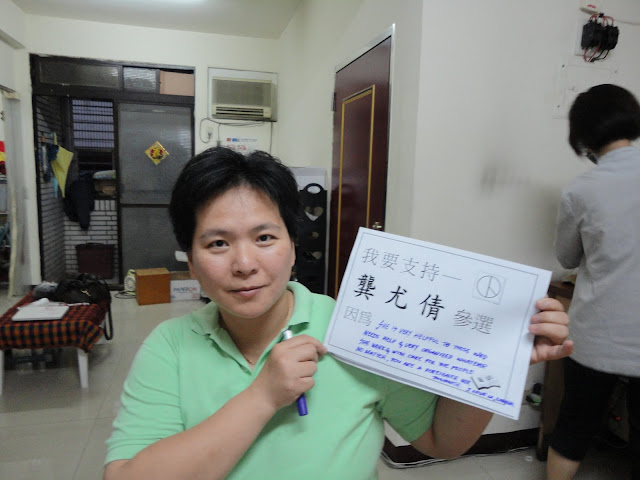 我要支持—
龔尤倩 參選
因爲 SHE IS VERY HELPFUL TO THOSE WHO
NEEDS HELP & VERY ORGANIZED WHATEVER
SHE WORKS WITH CARE FOR THE PEOPLE
NO MATTER YOU